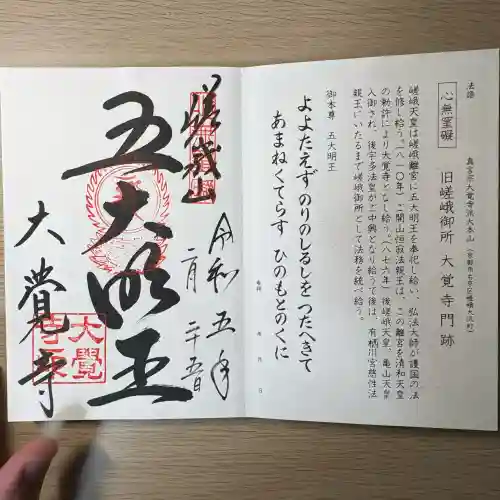 法語
心無罣礙
真言宗大覚寺派大本山(京都市右京区嵯峨大沢町)
旧嵯峨御所 大覚寺門跡
嵯峨天皇は嵯峨離宮に五大明王を奉祀し給い、弘法大師が護国の法
を修し給う。(八一〇年)開山恒寂法親王は、この離宮を清和天皇
の勅許により大覚寺となし給う。(八七六年)後嵯峨天皇、亀山天皇
入御され、後宇多法皇が中興となり給うて後は、有栖川宮慈性法
親王にいたるまで嵯峨御所として法務を統べ給う。
御本尊 五大明王
よよたえず のりのしるしを つたへきて
あまねくてらす ひのもとのくに
令和 年 月 日
嵯峨山
令和五年
二月二十五日
五大明王
大覺寺
大覺
寺